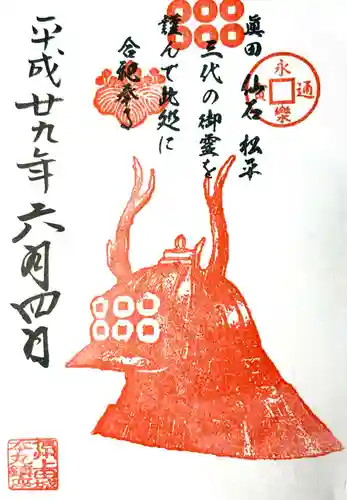 眞田 仙石 松平
三代の御霊を
謹んで此処に
合祀奉る
平成廿九年六月四日
永樂通寳